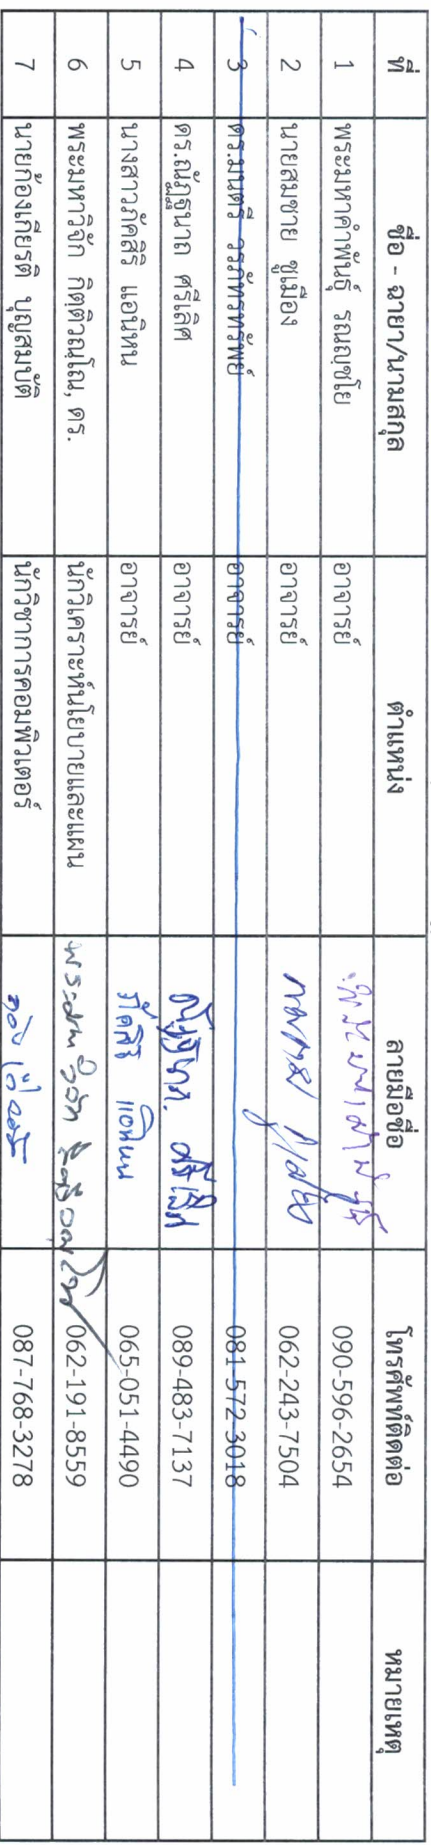 ที่ ชื่อ - ฉายา/นามสกุล ตำแหน่ง ลายมือชื่อ โทรศัพท์ติดต่อ หมายเหตุ
1 พระมหาคำพันธุ์ รณญฺชโย อาจารย์ 090-596-2654
2 นายสมชาย ชูเมือง อาจารย์ 062-243-7504
3 ดร.มนตรี วรภัทรทรัพย์ อาจารย์ 081-572-3018
4 ดร.ณัฏฐนาถ ศรีเลิศ อาจารย์ ณัฏฐนาถ ศรีเลิศ 089-483-7137
5 นางสาวภัคสิริ แอนิหน อาจารย์ ภัคสิริ แอนิหน 065-051-4490
6 พระมหาวิจัก กิตฺติวณฺโณ, ดร. นักวิเคราะห์นโยบายและแผน 062-191-8559
7 นายก้องเกียรติ บุญสมบัติ นักวิชาการคอมพิวเตอร์ 087-768-3278